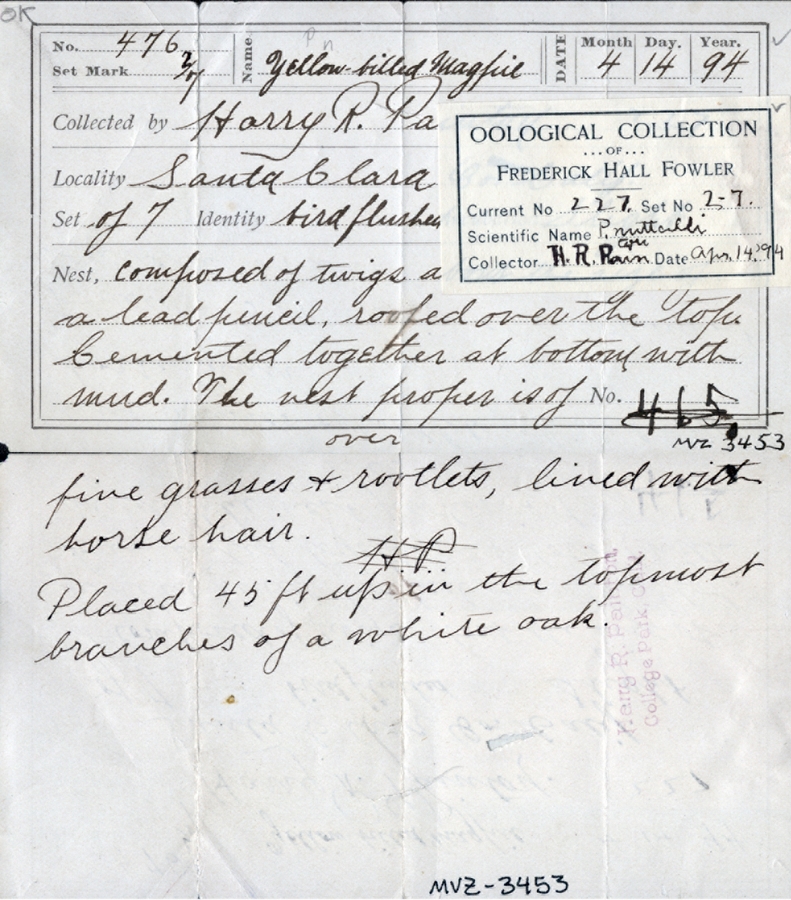 OK
No. 476 Name Yellow-billed Magpie DATE Month Day. Year.
Set Mark 2/7 4 14 94
P n
Collected by Harry R. Pa
Locality Santa Clara
Set of 7 Identity bird flushed
Nest, composed of twigs a
a lead pencil, roofed over the top.
Cemented together at bottom with
mud. The nest proper is of No. 465
over
MVZ 3453
OOLOGICAL COLLECTION
...OF...
FREDERICK HALL FOWLER
Current No 227. Set No 2-7.
Scientific Name P. nuttalli
Collector H. R. Painton Date Apr. 14, '94
fine grasses & rootlets, lined with
horse hair.
H.P.
Placed 45 ft up in the topmost
branches of a white oak.
Harry R. Painton
College Park, Cal.
MVZ-3453